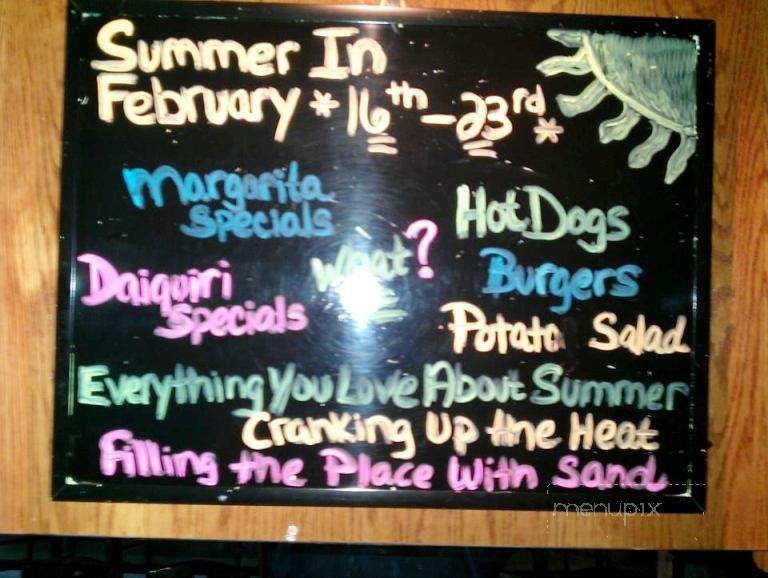 Summer In
February * 16th - 23rd *
Margarita
Specials
Hot Dogs
What?
Daiquiri
Specials
Burgers
Potato Salad
Everything You Love About Summer
Cranking Up the Heat
Filling the Place With Sand
menupix